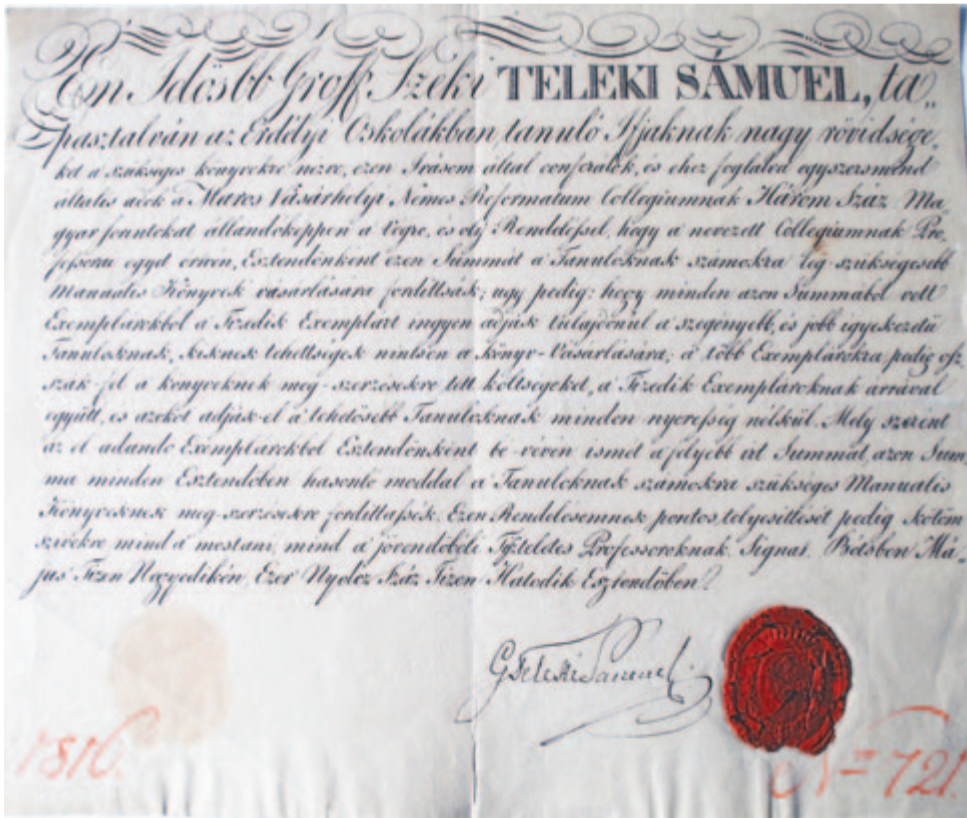 Én Idősbb Groff Széki TELEKI SÁMUEL, ta„
pasztalván az Erdélyi Oskolákban, tanuló Ifjaknak nagy rövidsége„
ket a szükséges könyvekre nézve, ezen Irásom által conferálok, és ehez foglalva egyszersmind
általis adok a Maros Vásárhelyi Nemes Reformatum Collegiumnak Három Száz Ma„
gyar forintokat állandóképpen a végre, és oly Rendeléssel, hogy a nevezett Collegiumnak Pro„
fessorai egyet értve, Esztendőnként ezen Summát a Tanulóknak számokra leg-szükségesebb
Manualis Könyvek vásárlására fordittsák; ugy pedig: hogy minden azon Summából vett
Exemplárokból a Tizedik Exemplárt ingyen adják tulajdonúl a szegényebb, és jobb igyekezetü
Tanulóknak, kiknek tehettségek nintsen a könyv-Vásárlására, a több Exemplárokra pedig osz„
szák-fel a könyveknek meg-szerzésekre tett költségeket, a Tizedik Exemplároknak árrával
együtt, és azokat adják-el a tehetősebb Tanulóknak minden nyereség nélkül. Mely szerint
az el adando Exemplárokból Esztendőnként be-vévén ismét a feljebb irt Summát azon Sum„
ma minden Esztendőben hasonló moddal a Tanulóknak számokra szükséges Manualis
Könyveknek meg-szerzésekre fordittassék. Ezen Rendelésemnek pontos telyesittését pedig kötöm
szivekre mind a mostani, mind a jövendőbéli Tiszteletes Professoroknak. Signat. Bétsben Má„
jus Tizen Negyedikén, Ezer Nyolcz Száz Tizen Hatodik Esztendőben.
G Teleki Sámuel
1816. Nro 721.